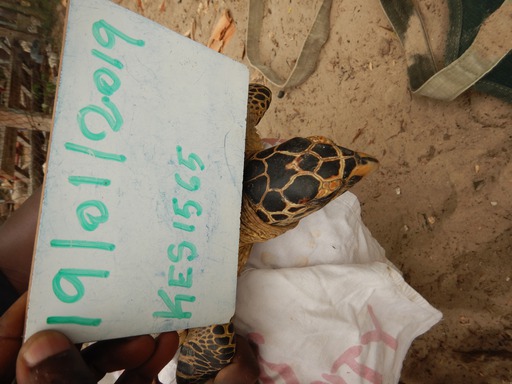 19/01/2019
KES1565